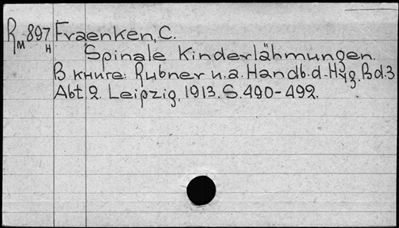 Rм-897н Fraenken, C.
Spinale Kinderlähmungen.
В книге: Rubner u. a. Handb. d. Hyg. Bd. 3
Abt. 2. Leipzig, 1913. S. 490-492.